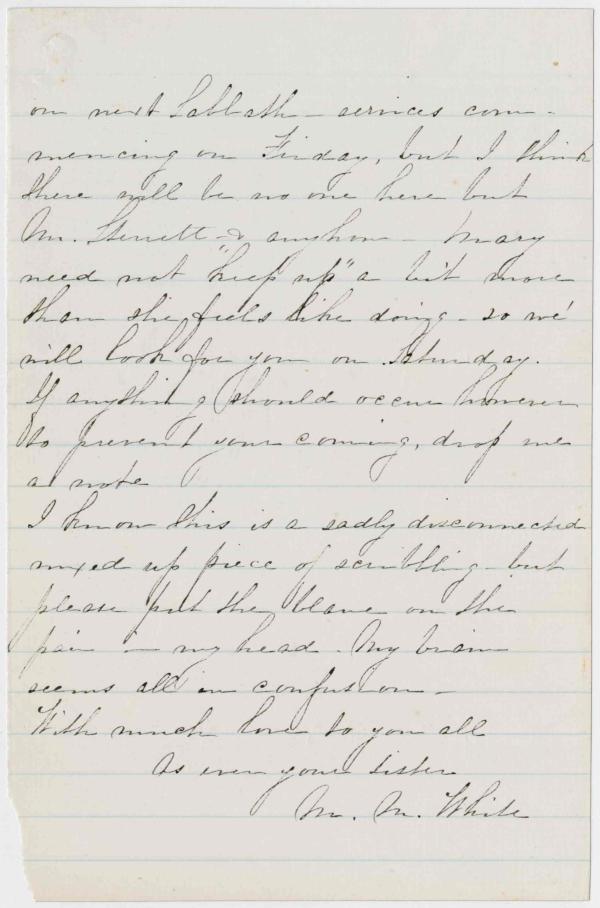 on next Sabbath – services com-
mencing on Friday, but I think
there will be no one here but
Mr. Sterrett – & anyhow – Mary
need not "keep up" a bit more
than she feels like doing – so we'
will look for you on Saturday.
If anything should occur however
to prevent your coming, drop me
a note
I know this is a sadly disconnected
mixed up piece of scribbling – but
please put the blame on the
pain in my head. My brain
seems all in confusion –
With much love to you all
As ever your sister
M. M. White